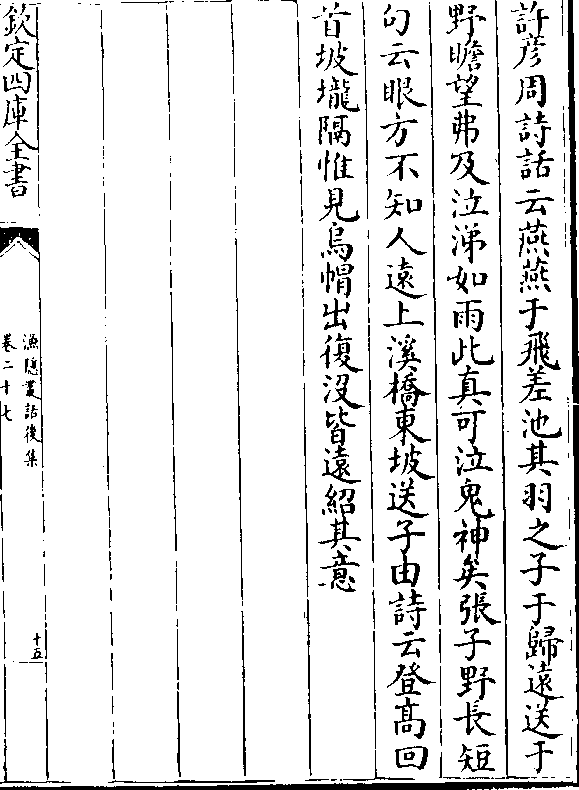 許彦周詩話云燕燕于飛差池其羽之子于歸遠送于
野瞻望弗及泣涕如雨此真可泣鬼神矣張子野長短
句云眼力不知人遠上溪橋東坡送子由詩云登髙回
首坡壠隔惟見烏帽出復沒皆遠紹其意
欽定四庫全書
漁隱叢話後集
卷二十七
十五